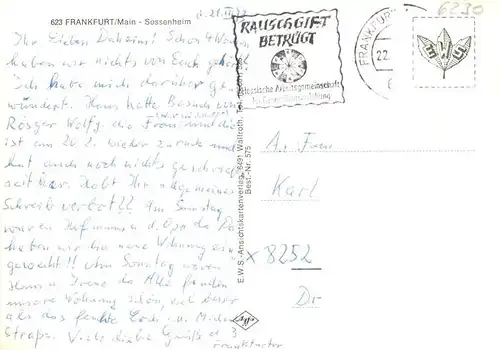 623 FRANKFURT/Main - Sossenheim
6230
RAUSCHGIFT
BETRÜGT
Hessische Arbeitsgemeinschaft
FRANKFURT
22.
Ihr Lieben Daheim! Schon 4 Wochen
haben wir nichts von Euch gehört
Ich habe mich darüber ge
wundert. Hans hatte Besuch von
Rösger Wolfg. die Frau
ist am 20.2. wieder zurück und
hat auch noch nichts geschrieben
seit her. Habt Ihr allgemeines
Schreib verbot!! Am Sonntag
waren Hofmann u. d. Opa da
haben wir die neue Wohnung ein
geweiht!! Am Sonntag waren
Hans u Irene da. Alle fanden
unsere Wohnung schön, viel besser
als das feuchte Loch i. u.
Straße. Viele liebe Grüße d. 3
Frankfurter
E.W.S.-Ansichtskartenverlag, 6491 Wallroth, Tel.
Best.-Nr. 575
Agfa
An Frau
Karl
x 8252